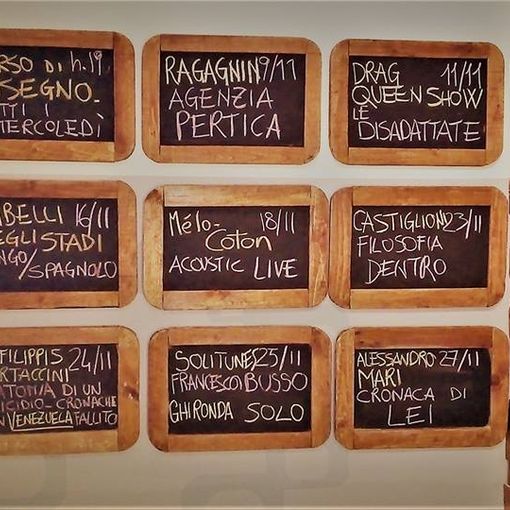 RSO DI h.19
SEGNO-
TTI I
ERCOLEDÌ
RAGAGNIN 9/11
AGENZIA
PERTICA
DRAG 11/11
QUEEN SHOW
LE
DISADATTATE
BELLI 16/11
EGLI STADI
NGO/SPAGNOLO
Mélo- 18/11
COTON
ACOUSTIC LIVE
CASTIGLIONI 23/11
FILOSOFIA
DENTRO
FILIPPIS 24/11
RTACCINI
ATOMIA DI UN
ICIDIO-CRONACHE
N VENEZUELA FALLITO
SOLITUNES 25/11
FRANCESCO BUSSO
GHIRONDA SOLO
ALESSANDRO 27/11
MARI
CRONACA DI
LEI